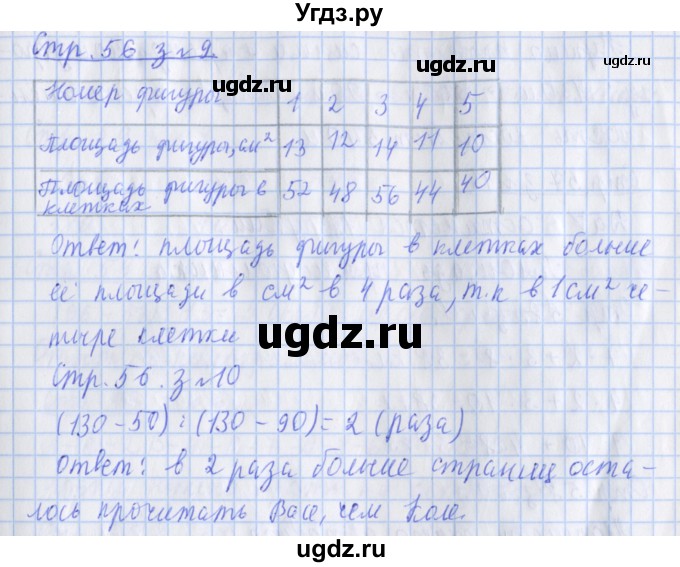 Угдз.ру
Стр. 56 з№9.
ugdz.ru ugdz.ru
Номер фигуры 1 2 3 4 5
Площадь фигуры, см² 13 12 14 11 10
Площадь фигуры в клетках 52 48 56 44 40
ugdz.ru
Ответ: площадь фигуры в клетках больше
её площади в см² в 4 раза, т.к в 1 см² че-
тыре клетки
ugdz.ru
Стр. 56. з№10
(130-50):(130-90)=2 (раза)
Ответ: в 2 раза больше страниц оста-
ugdz.ru ugdz.ru
лось прочитать Васе, чем Коле.
ugdz.ru